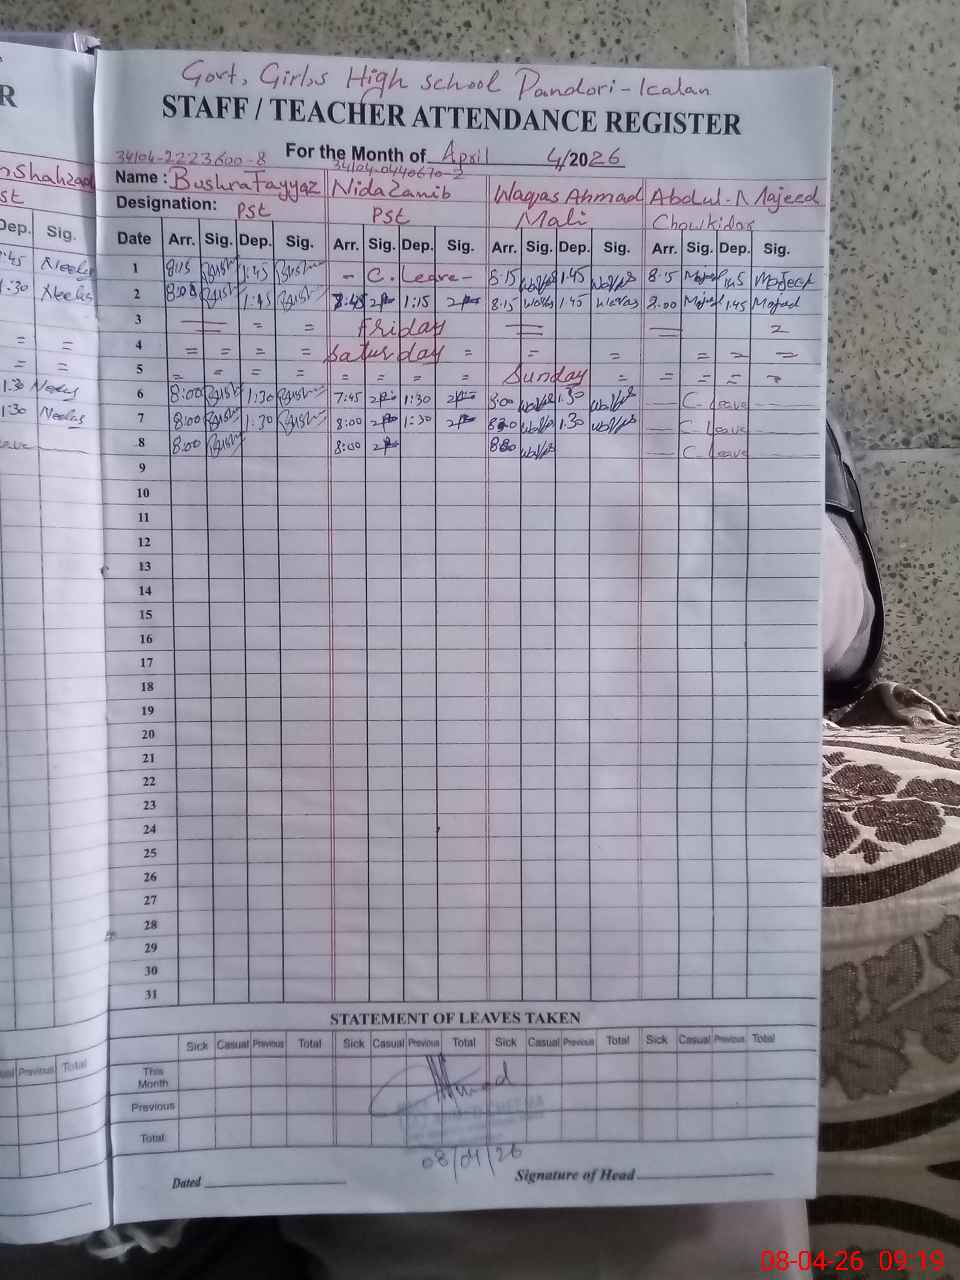 Govt, Girls High school Pandori-kalan
R
STAFF / TEACHER ATTENDANCE REGISTER
34104-2223600-8 For the Month of April 4/2026
34104-0440670-2
Shahzad Name : Bushra Fayyaz Nida Zanib Waqas Ahmad Abdul-Majeed
st Designation: Pst Pst Mali Chowkidar
Dep. Sig. Date Arr. Sig. Dep. Sig. Arr. Sig. Dep. Sig. Arr. Sig. Dep. Sig. Arr. Sig. Dep. Sig.
:45 1 8:15 1:45 - C. Leave - 8:15 1:45 8:15 1:45 Majeed
1:30 2 8:08 1:45 1:15 8:15 1:45 2:00 1:45 Majeed
3 = = = Friday = = =
= = 4 = = = = Saturday = = = = = =
= = 5 = = = = = = = = Sunday = = = = =
1:30 6 8:00 1:30 7:45 1:30 8:00 1:30 C. Leave
1:30 7 8:00 1:30 8:00 1:30 1:30 C. Leave
8 8:00 8:00 C. Leave
9
10
11
12
13
14
15
16
17
18
19
20
21
22
23
24
25
26
27
28
29
30
31
STATEMENT OF LEAVES TAKEN
Previous Total Sick Casual Previous Total Sick Casual Previous Total Sick Casual Previous Total Sick Casual Previous Total
This Month
Previous
Total
08/04/26
Dated Signature of Head
08-04-26 09:19